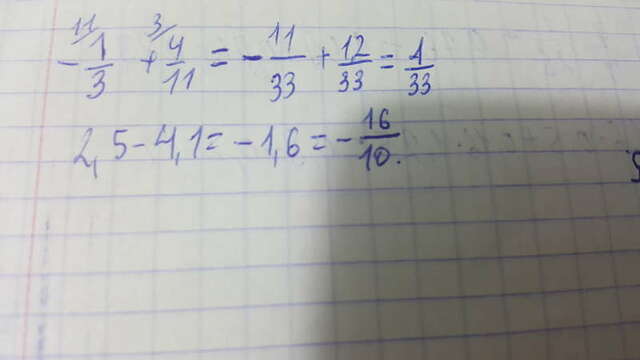 -\frac{1}{3}^{11/} + \frac{4}{11}^{3/} = -\frac{11}{33} + \frac{12}{33} = \frac{1}{33}
2,5-4,1=-1,6=-\frac{16}{10}.